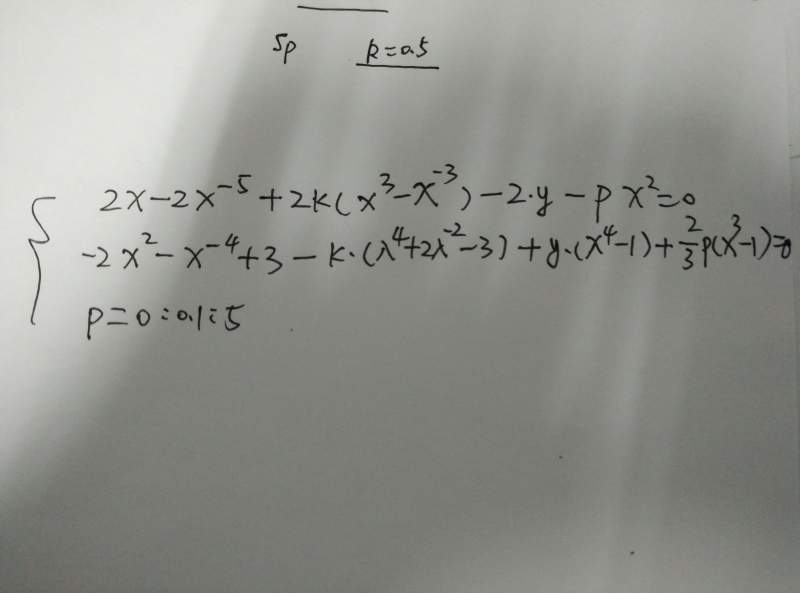 5p k=0.5
2x-2x⁻⁵+2k(x³-x⁻³)-2·y-px²=0
-2x²-x⁻⁴+3-k·(x⁴+2x⁻²-3)+y·(x⁴-1)+2/3p(x³-1)=0
p=0:0.1:5